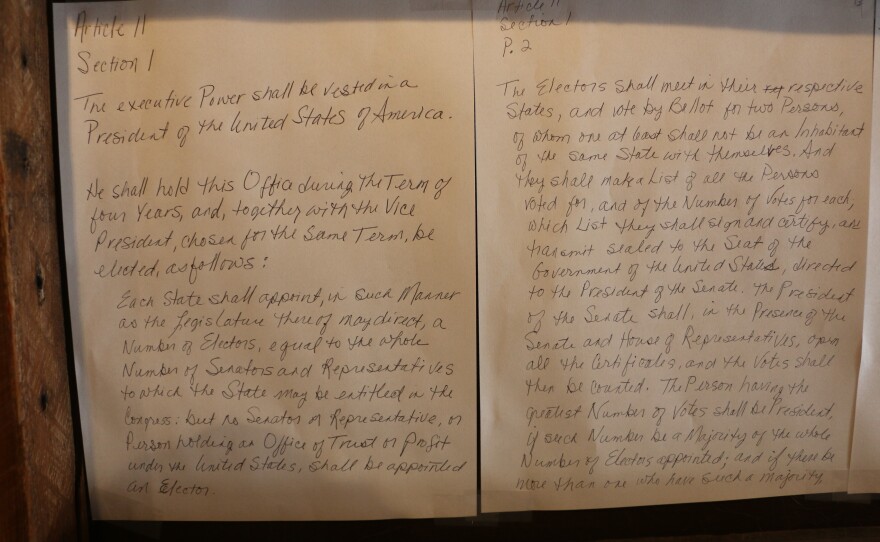 Article 11
Section 1
The executive Power shall be vested in a
President of the United States of America.
He shall hold this Office during the Term of
four Years, and, together with the Vice
President, chosen for the Same Term, be
elected, as follows:
Each State shall appoint, in such Manner
as the Legislature thereof may direct, a
Number of Electors, equal to the whole
Number of Senators and Representatives
to which the State may be entitled in the
Congress: but no Senator or Representative, or
Person holding an Office of Trust or Profit
under the United States, shall be appointed
an Elector.
Article 11
Section 1
P. 2
The Electors shall meet in their respective
States, and vote by Ballot for two Persons,
of whom one at least shall not be an Inhabitant
of the same State with themselves. And
they shall make a List of all the Persons
voted for, and of the Number of Votes for each;
which List they shall sign and certify, and
transmit sealed to the Seat of the
Government of the United States, directed
to the President of the Senate. The President
of the Senate shall, in the Presence of the
Senate and House of Representatives, open
all the Certificates, and the Votes shall
then be counted. The Person having the
greatest Number of Votes shall be President,
if such Number be a Majority of the whole
Number of Electors appointed; and if there be
more than one who have such a Majority,